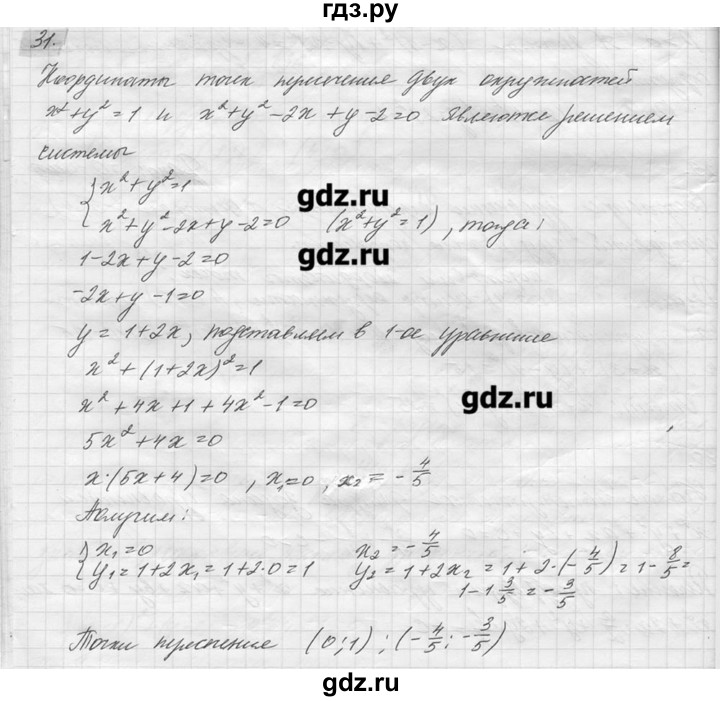 гдз.ру
31.
Координаты точек пересечения двух окружностей
x²+y²=1 и x²+y²-2x+y-2=0 являются решением
системы
{x²+y²=1
gdz.ru
x²+y²-2x+y-2=0 (x²+y²=1), тогда:
1-2x+y-2=0
gdz.ru
-2x+y-1=0
y=1+2x, подставляем в 1-ое уравнение
x²+(1+2x)²=1
x²+4x+1+4x²-1=0
gdz.ru
5x²+4x=0
x·(5x+4)=0, x₁=0, x₂=-4/5
Получим:
{x₁=0 x₂=-4/5
y₁=1+2x₁=1+2·0=1 y₂=1+2x₂=1+2·(-4/5)=1-8/5=
1-1 3/5=-3/5
Точки пересечения (0;1); (-4/5; -3/5)
gdz.ru